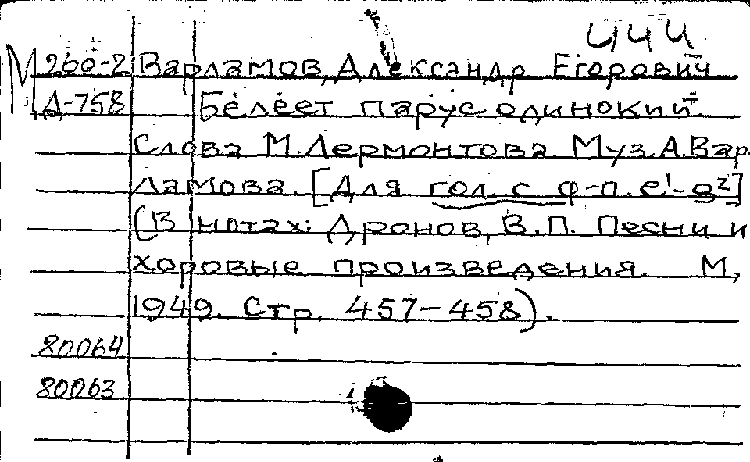 444
М 260-2 Варламов, Александр Егорович
Д-758 Белеет парус одинокий.
Слова М. Лермонтова Муз. А. Вар-
ламова. [Для гол. с ф-п. e¹-g²]
(В нотах: Дронов, В.П. Песни и
хоровые произведения. М,
1949. Стр. 457-458).
80064
80063